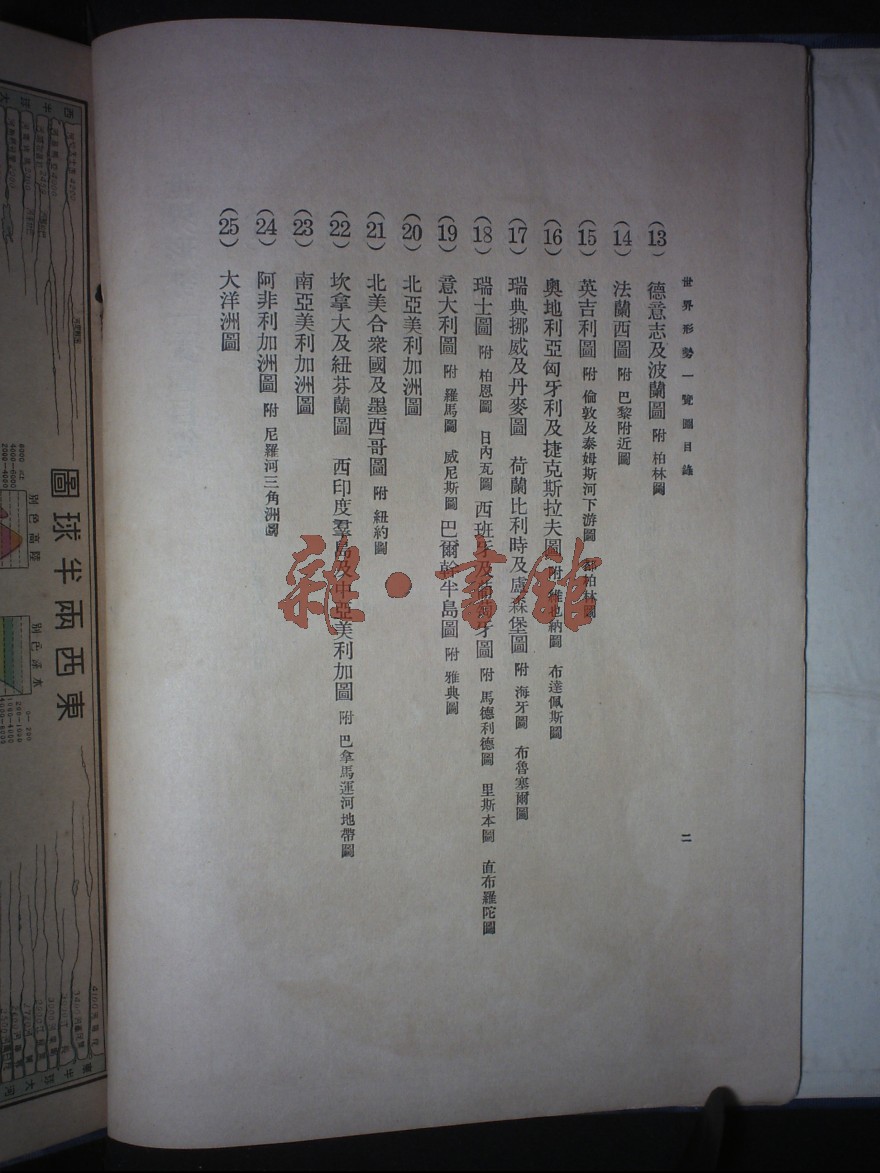 世界形勢一覽圖目錄
(13) 德意志及波蘭圖 附 柏林圖
(14) 法蘭西圖 附 巴黎附近圖
(15) 英吉利圖 附 倫敦及泰姆斯河下游圖 都柏林圖
(16) 奧地利亞匈牙利及捷克斯拉夫圖 附 維也納圖 布達佩斯圖
(17) 瑞典挪威及丹麥圖 荷蘭比利時及盧森堡圖 附 海牙圖 布魯塞爾圖
(18) 瑞士圖 附 柏恩圖 日內瓦圖 西班牙及葡萄牙圖 附 馬德利德圖 里斯本圖 直布羅陀圖
(19) 意大利圖 附 羅馬圖 威尼斯圖 巴爾幹半島圖 附 雅典圖
(20) 北亞美利加洲圖
(21) 北美合衆國及墨西哥圖 附 紐約圖
(22) 坎拿大及紐芬蘭圖 西印度羣島及中亞美利加圖 附 巴拿馬運河地帶圖
(23) 南亞美利加洲圖
(24) 阿非利加洲圖 附 尼羅河三角洲圖
(25) 大洋洲圖
二
雜·書館
東西兩半球圖